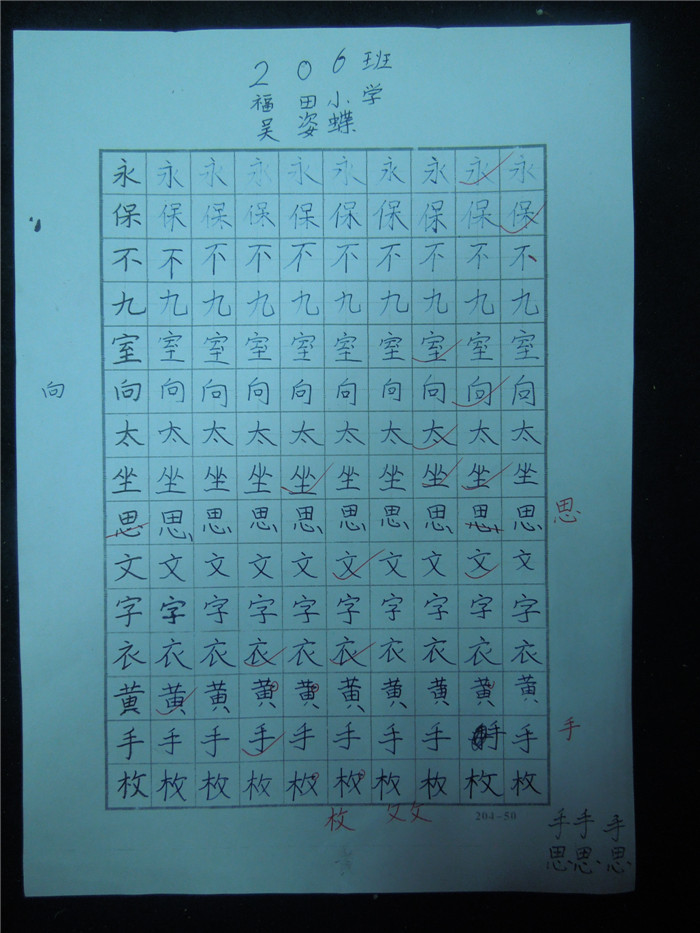 206班
福田小学
吴姿蝶
永永永永永永永永永永
保保保保保保保保保保
不不不不不不不不不不
九九九九九九九九九九
室室室室室室室室室室
向
向向向向向向向向向向
太太太太太太太太太太
坐坐坐坐坐坐坐坐坐坐
思思思思思思思思思思
思
文文文文文文文文文文
字字字字字字字字字字
衣衣衣衣衣衣衣衣衣衣
黄黄黄黄黄黄黄黄黄黄
手手手手手手手手手手
手
枚枚枚枚枚枚枚枚枚枚
枚 攵攵
204-50
手手手
思思思